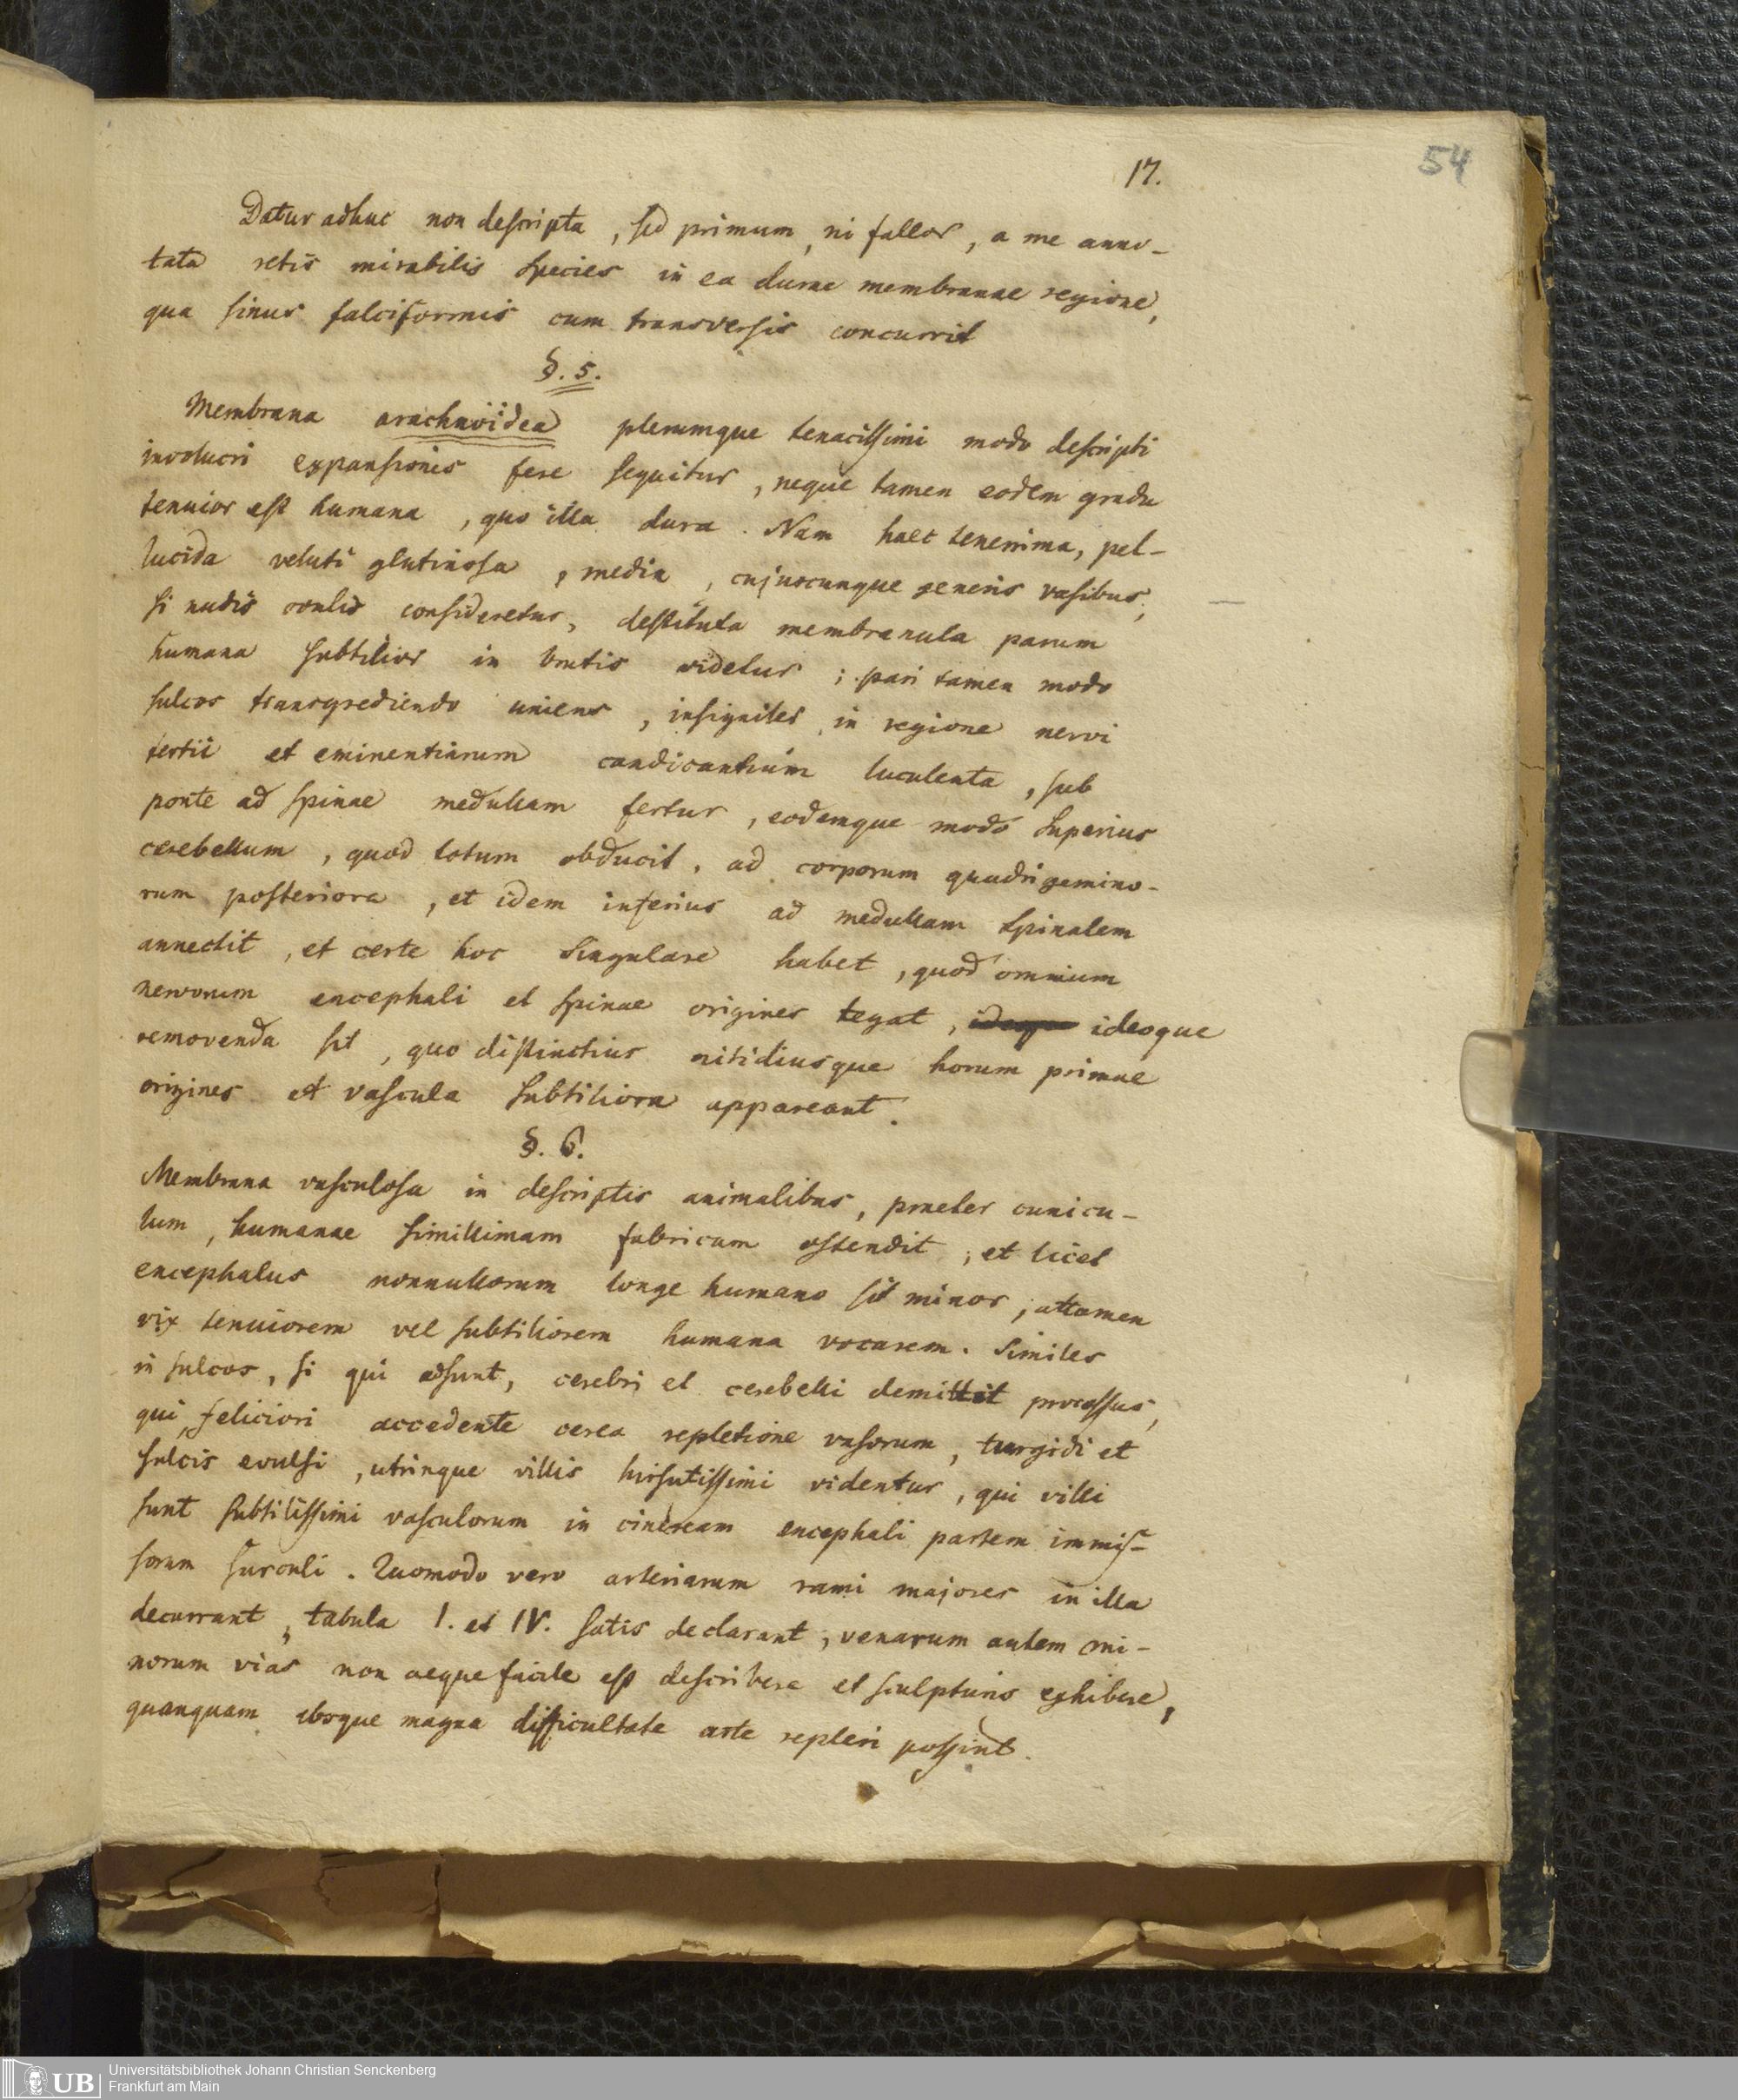 17.
54
Datur adhuc non descripta, sed primum, ni fallor, a me anno-
tata retis mirabilis species in ea durae membranae regione,
qua sinus falciformis cum transversis concurrit
§. 5.
Membrana arachnoidea plerumque tenacissimi modo descripti
involucri expansiones fere sequitur, neque tamen eodem gradu
tenuior est humana, quo illa dura. Nam haec tenerrima, pel-
lucida veluti glutinosa, media, cujuscunque generis vasibus,
si nudis oculis consideretur, destituta membranula parum
humana subtilior in brutis videtur; pari tamen modo
sulcos transgrediendo uniens, insigniter in regione nervi
tertii et eminentiarum candicantium luculenta, sub
ponte ad spinae medullam fertur, eodemque modo superius
cerebellum, quod totum obducit, ad corporum quadrigemino-
rum posteriora, et idem inferius ad medullam spinalem
annectit, et certe hoc singulare habet, quod omnium
nervorum encephali et spinae origines tegat, ideoque ideoque
removenda sit, quo distinctius nitidiusque horum primae
origines et vascula subtiliora appareant.
§. 6.
Membrana vasculosa in descriptis animalibus, praeter cunicu-
lum, humanae simillimam fabricam ostendit; et licet
encephalus nonnullorum longe humano sit minor, attamen
vix tenuiorem vel subtiliorem humana vocarem. Similes
in sulcos, si qui adsunt, cerebri et cerebelli demittit processus,
qui, feliciori accedente cerea repletione vasorum, turgidi et
sulcis evulsi, utrinque villis hirsutissimi videntur, qui villi
sunt subtilissimi vasculorum in cineream encephali partem immis-
sorum surculi. Quomodo vero arteriarum rami majores in illa
decurrant, tabula I. et IV. satis declarant, venarum autem mi-
norum vias non aeque facile est describere et sculpturis exhibere,
quanquam absque magna difficultate arte repleri possint.
UB
Universitätsbibliothek Johann Christian Senckenberg
Frankfurt am Main